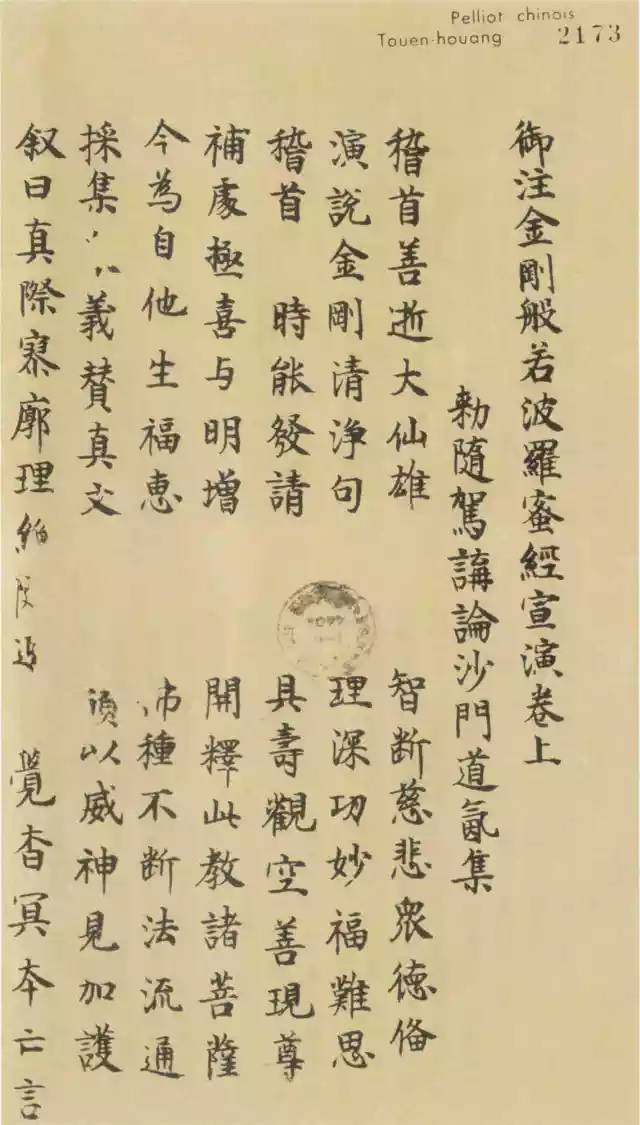 Pelliot chinois
Touen-houang 2173
御注金剛般若波羅蜜經宣演卷上
勑隨駕講論沙門道氤集
稽首善逝大仙雄 智断慈悲衆德俻
演說金剛清淨句 理深功妙福難思
稽首 時能發請 具壽觀空善現尊
補處極喜与明增 開釋此教諸菩薩
今為自他生福惠 種不断法流通
採集 義賛真文 以威神見加護
叙曰真際寥廓理 覺杳冥夲亡言